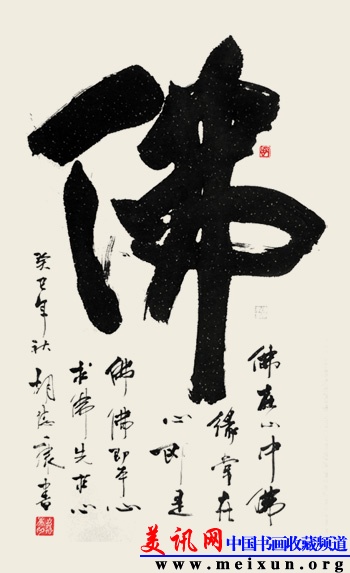 佛
佛在心中佛
缘常在
心即是
佛佛即心
求佛先求心
癸巳年秋 胡志书
美讯网 中国书画收藏频道
www.meixun.org